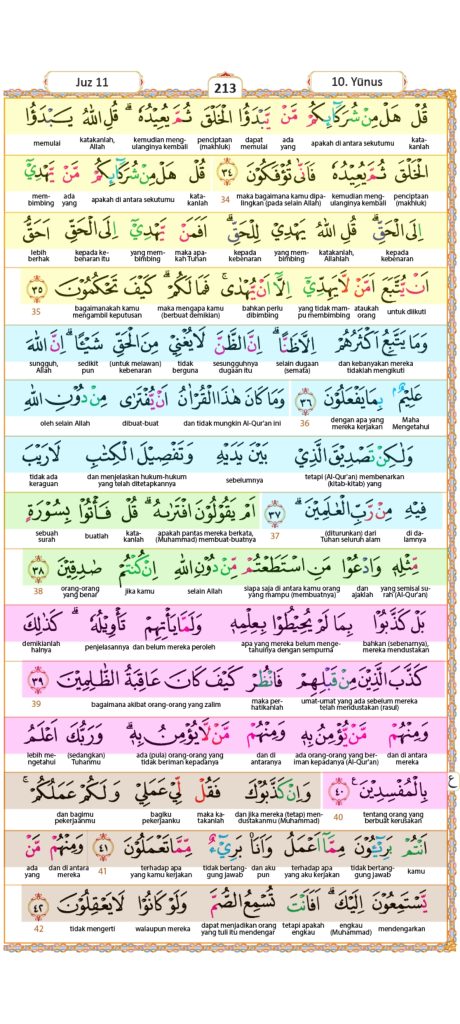 Juz 11
213
10. Yūnus
قُلْ هَلْ مِنْ شُرَكَاۤىِٕكُمْ مَّنْ يَّبْدَؤُا الْخَلْقَ ثُمَّ يُعِيْدُهٗۗ قُلِ اللّٰهُ يَبْدَؤُا
kata-kanlah apakah di antara sekutumu ada yang dapat memulai penciptaan (makhluk) kemudian meng-ulanginya kembali katakanlah, Allah memulai
الْخَلْقَ ثُمَّ يُعِيْدُهٗ فَاَنّٰى تُؤْفَكُوْنَ ٣٤ قُلْ هَلْ مِنْ شُرَكَاۤىِٕكُمْ مَّنْ يَّهْدِيْٓ
penciptaan (makhluk) kemudian meng-ulanginya kembali maka bagaimana kamu dipa-lingkan (pada selain Allah) 34 kata-kanlah apakah di antara sekutumu ada yang mem-bimbing
اِلَى الْحَقِّۗ قُلِ اللّٰهُ يَهْدِيْ لِلْحَقِّۗ اَفَمَنْ يَّهْدِيْٓ اِلَى الْحَقِّ اَحَقُّ
kepada kebenaran katakanlah, Allahlah yang mem-bimbing kepada kebenaran maka apa-kah Tuhan yang mem-bimbing kepada ke-benaran itu lebih berhak
اَنْ يُّتَّبَعَ اَمَّنْ لَّا يَهِدِّيْٓ اِلَّآ اَنْ يُّهْدٰىۚ فَمَا لَكُمْۗ كَيْفَ تَحْكُمُوْنَ ٣٥
untuk diikuti ataukah orang yang tidak mam-pu membimbing bahkan perlu dibimbing maka mengapa kamu (berbuat demikian) bagaimanakah kamu mengambil keputusan 35
وَمَا يَتَّبِعُ اَكْثَرُهُمْ اِلَّا ظَنًّاۗ اِنَّ الظَّنَّ لَا يُغْنِيْ مِنَ الْحَقِّ شَيْـًٔاۗ اِنَّ اللّٰهَ
dan kebanyakan mereka tidaklah mengikuti selain dugaan (semata) sesungguhnya dugaan itu tidak berguna (untuk melawan) kebenaran sedikit pun sungguh, Allah
عَلِيْمٌۢ بِمَا يَفْعَلُوْنَ ٣٦ وَمَا كَانَ هٰذَا الْقُرْاٰنُ اَنْ يُّفْتَرٰى مِنْ دُوْنِ اللّٰهِ
Maha Mengetahui dengan apa yang mereka kerjakan 36 dan tidak mungkin Al-Qur'an ini dibuat-buat oleh selain Allah
وَلٰكِنْ تَصْدِيْقَ الَّذِيْ بَيْنَ يَدَيْهِ وَتَفْصِيْلَ الْكِتٰبِ لَا رَيْبَ
tetapi (Al-Qur'an) membenarkan (kitab-kitab) yang sebelumnya dan menjelaskan hukum-hukum yang telah ditetapkannya tidak ada keraguan
فِيْهِ مِنْ رَّبِّ الْعٰلَمِيْنَۗ ٣٧ اَمْ يَقُوْلُوْنَ افْتَرٰىهُۗ قُلْ فَأْتُوْا بِسُوْرَةٍ
di da-lamnya (diturunkan) dari Tuhan seluruh alam 37 apakah pantas mereka berkata, (Muhammad) membuat-buatnya kata-kanlah buatlah sebuah surah
مِّثْلِهٖ وَادْعُوْا مَنِ اسْتَطَعْتُمْ مِّنْ دُوْنِ اللّٰهِ اِنْ كُنْتُمْ صٰدِقِيْنَ ٣٨
yang semisal su-rah (Al-Qur'an) dan ajaklah siapa saja di antara kamu orang yang mampu (membuatnya) selain Allah jika kamu orang-orang yang benar 38
بَلْ كَذَّبُوْا بِمَا لَمْ يُحِيْطُوْا بِعِلْمِهٖ وَلَمَّا يَأْتِهِمْ تَأْوِيْلُهٗۗ كَذٰلِكَ
bahkan (sebenarnya), mereka mendustakan apa yang mereka belum menge-tahuinya dengan sempurna dan belum mereka peroleh penjelasannya demikianlah halnya
كَذَّبَ الَّذِيْنَ مِنْ قَبْلِهِمْ فَانْظُرْ كَيْفَ كَانَ عَاقِبَةُ الظّٰلِمِيْنَ ٣٩
umat-umat yang ada sebelum mereka telah mendustakan (rasul) maka per-hatikanlah bagaimana akibat orang-orang yang zalim 39
وَمِنْهُمْ مَّنْ يُّؤْمِنُ بِهٖ وَمِنْهُمْ مَّنْ لَّا يُؤْمِنُ بِهٖۗ وَرَبُّكَ اَعْلَمُ
dan di antara mereka ada orang-orang yang ber-iman kepadanya (Al-Qur'an) dan di antaranya ada (pula) orang-orang yang tidak beriman kepadanya (sedangkan) Tuhanmu lebih me-ngetahui
بِالْمُفْسِدِيْنَ ٤٠ وَاِنْ كَذَّبُوْكَ فَقُلْ لِّيْ عَمَلِيْ وَلَكُمْ عَمَلُكُمْۚ
ع
tentang orang yang berbuat kerusakan 40 dan jika mereka (tetap) men-dustakanmu (Muhammad) maka ka-takanlah bagiku pekerjaanku dan bagimu pekerjaanmu
اَنْتُمْ بَرِيْۤـُٔوْنَ مِمَّآ اَعْمَلُ وَاَنَا۠ بَرِيْۤءٌ مِّمَّا تَعْمَلُوْنَ ٤١ وَمِنْهُمْ مَّنْ
kamu tidak bertang-gung jawab terhadap apa yang aku kerjakan dan aku pun tidak bertang-gung jawab terhadap apa yang kamu kerjakan 41 dan di antara mereka ada yang
يَّسْتَمِعُوْنَ اِلَيْكَۗ اَفَاَنْتَ تُسْمِعُ الصُّمَّ وَلَوْ كَانُوْا لَا يَعْقِلُوْنَ ٤٢
mendengarkan engkau (Muhammad) tetapi apakah engkau dapat menjadikan orang yang tuli itu mendengar walaupun mereka tidak mengerti 42